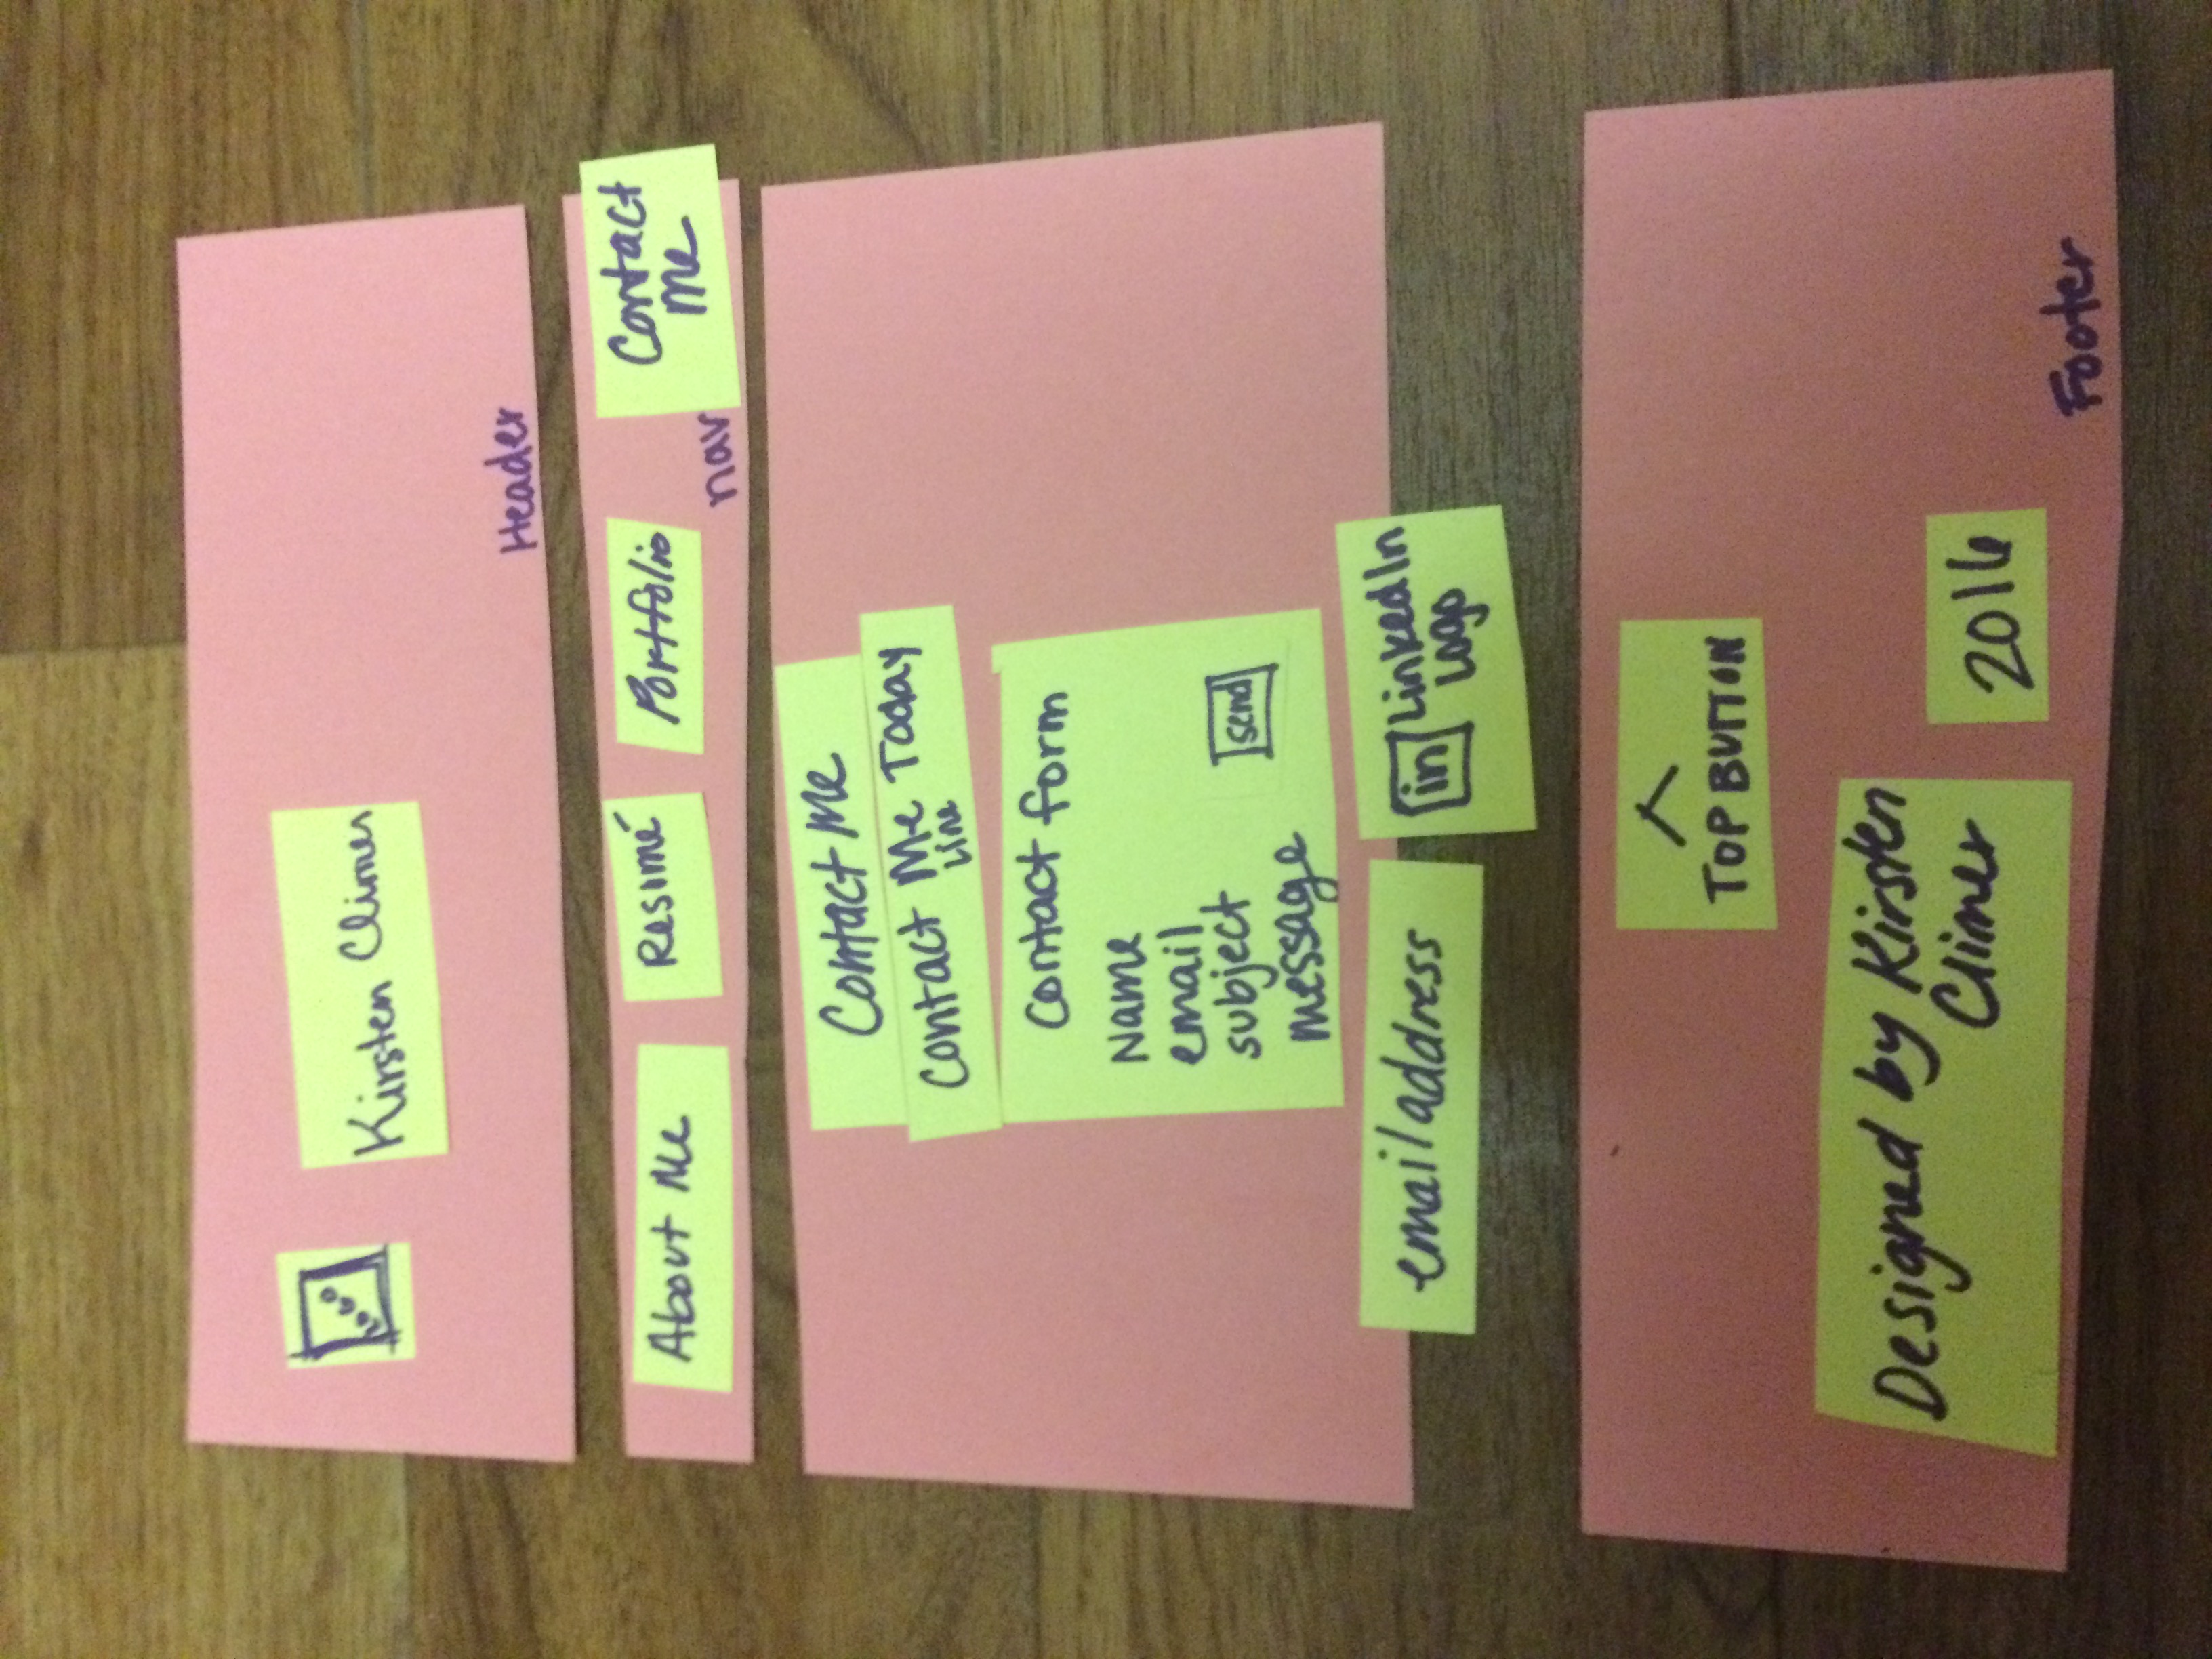 LOGO
Kirsten Climer
Header
About Me
Resumé
Portfolio
Contact
Me
nav
Contact Me
Contact Me Today
Line
Contact form
Name
email
subject
send
message
email address
in LinkedIn
Logo
TOP BUTTON
Designed by Kirsten
Climer
2016
Footer